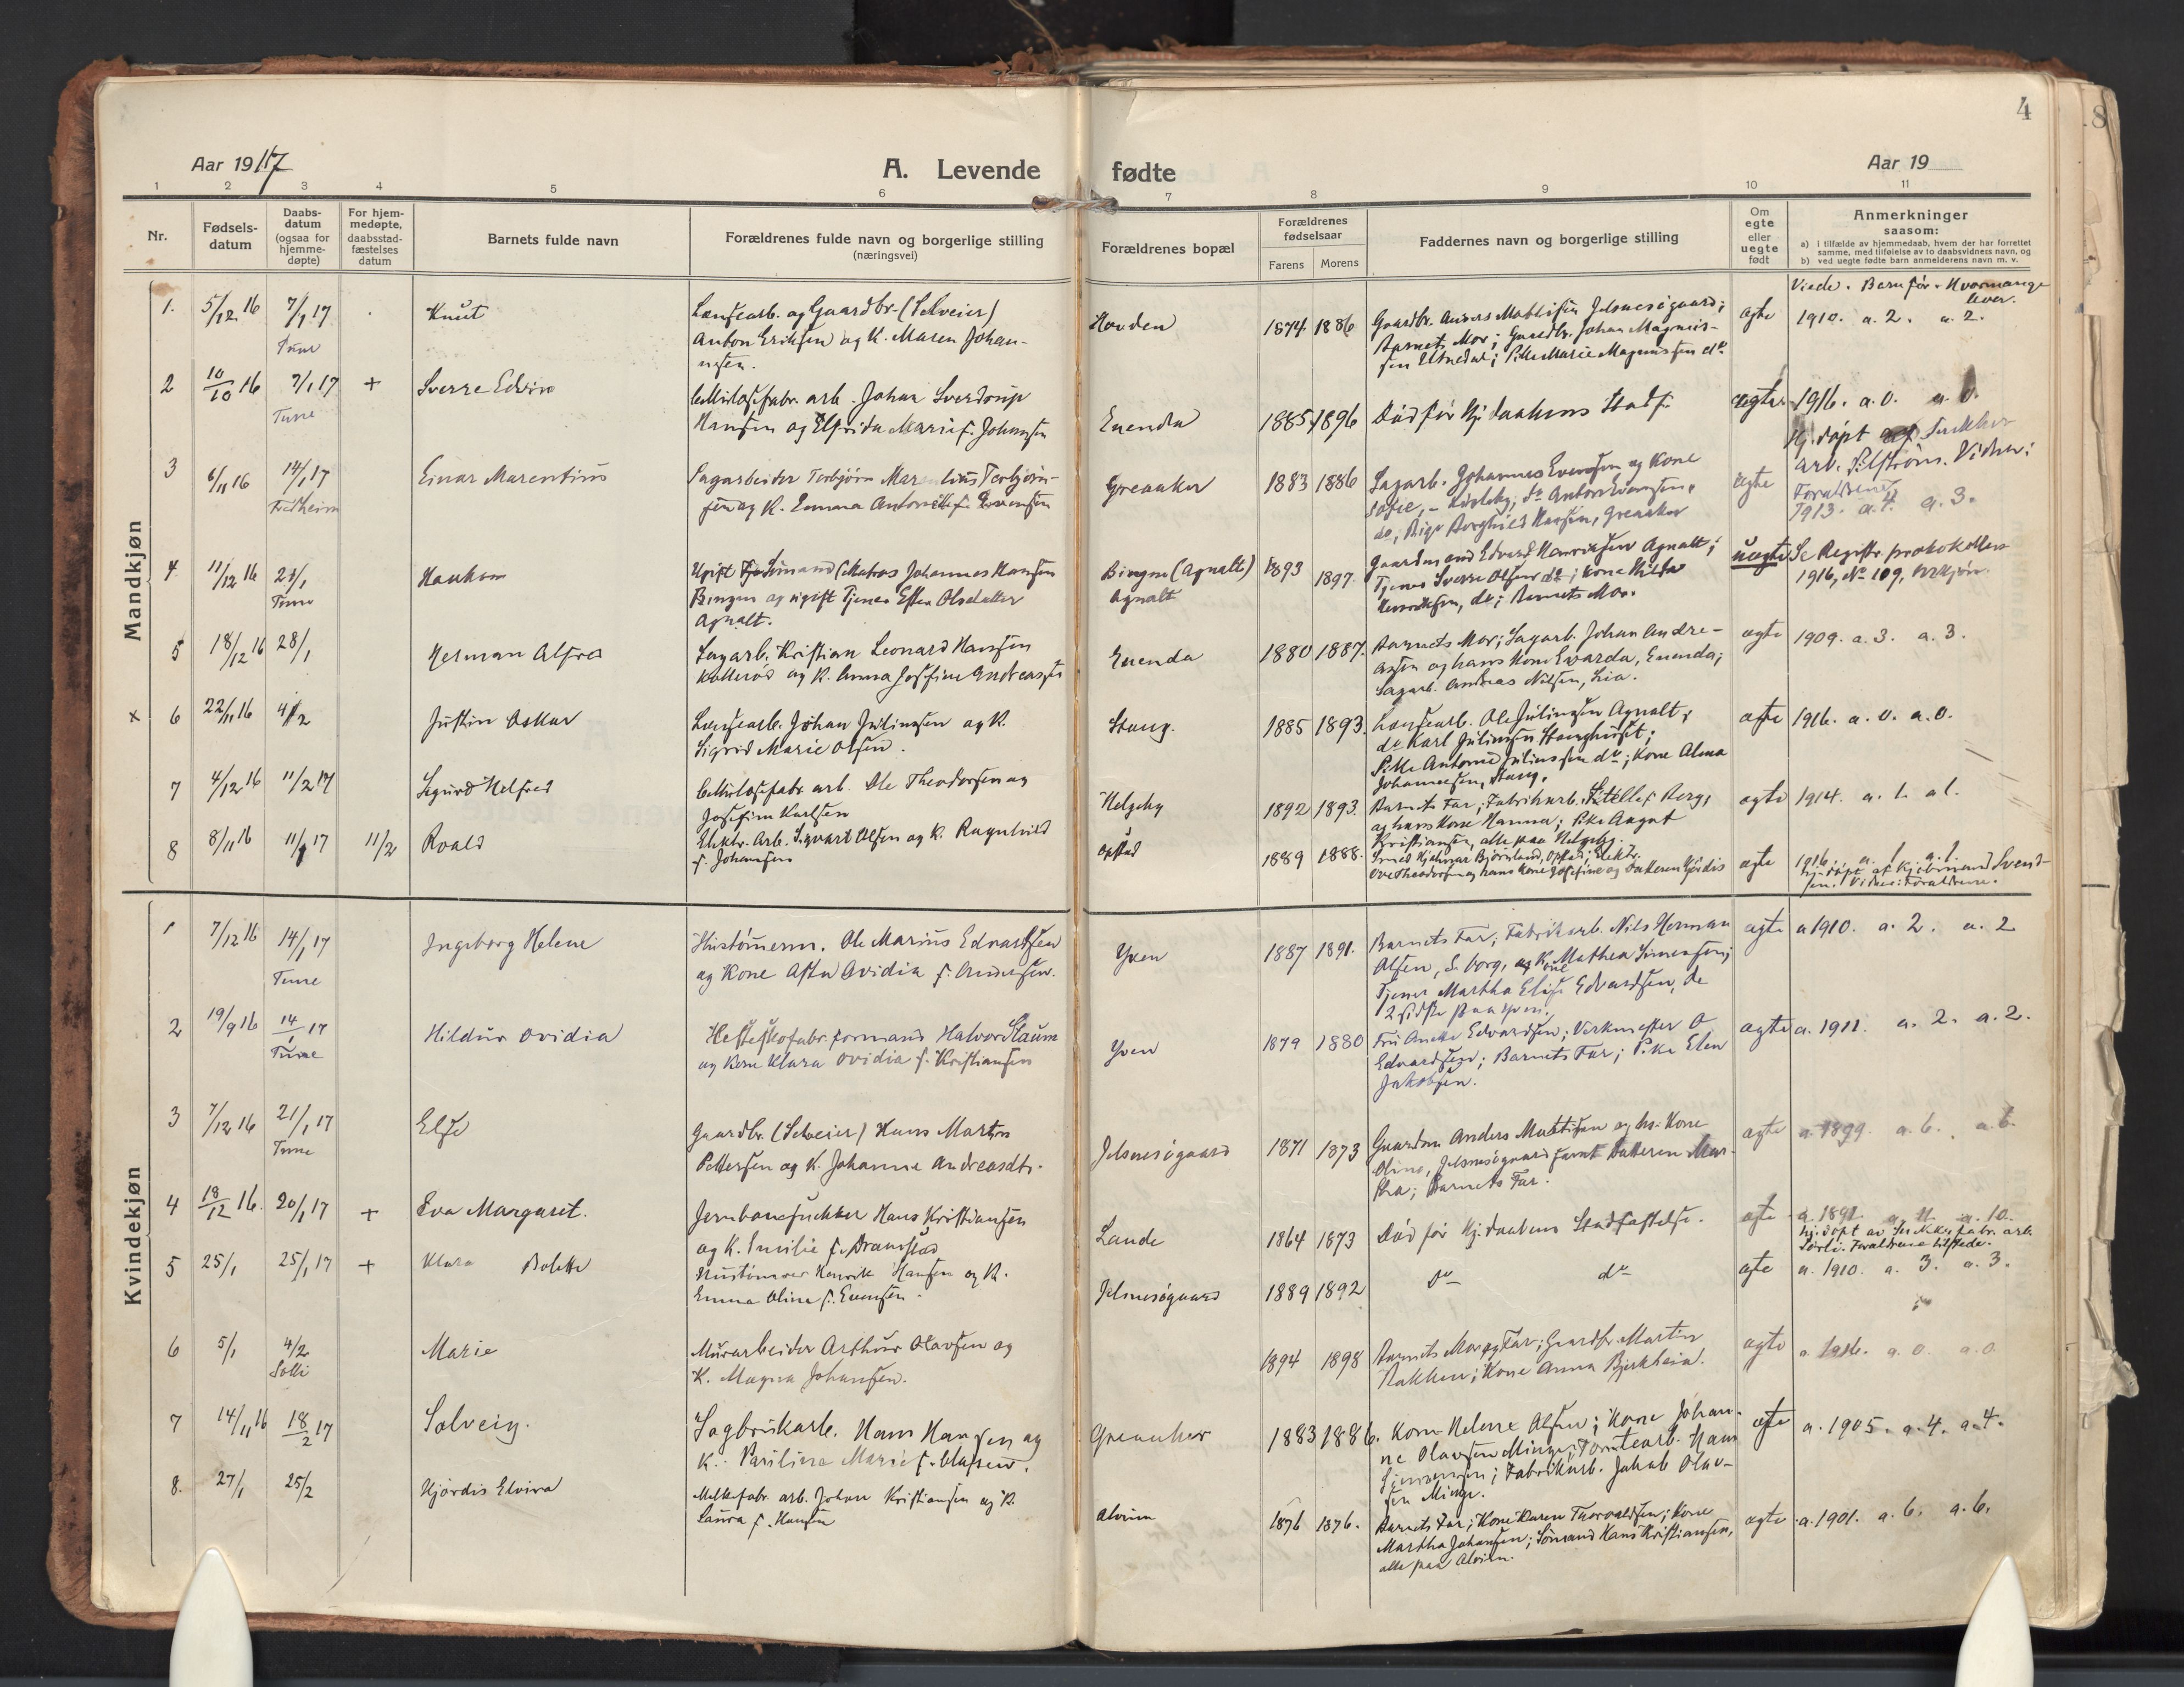 4
Aar 1917
A. Levende
fødte
Aar 19
1 2 3 4 5 6 7 8 9 10 11
Nr.
Fødsels-
datum
Daabs-
datum
(ogsaa for
hjemme-
døpte)
For hjem-
medøpte,
daabsstad-
fæstelses
datum
Barnets fulde navn
Forældrenes fulde navn og borgerlige stilling
(næringsvei)
Forældrenes bopæl
Forældrenes
fødselsaar
Farens Morens
Faddernes navn og borgerlige stilling
Om
egte
eller
uegte
født
Anmerkninger
saasom:
a) i tilfælde av hjemmedaab, hvem der har forrettet
samme, med tilføielse av to daabsvidners navn, og
b) ved uegte fødte barn anmelderens navn m. v.
Viede. Barn før. Hvormange
lever.
Mandkjøn
1. 5/12 16 7/1 17 Knut
Tune
Lænsearb. og Gaardbr. (Selveier)
Anton Eriksen og K. Maren Johan-
nesen.
Hovden 1874 1886
Gaardbr. Anders Mathisen Jelsnesøgaard;
Barnets Mor; Gaardbr. Johan Magnus-
sen; Pike Marie Magnussen do
ægte 1910. a. 2. a. 2.
2 10/10 16 7/1 17 + Sverre Edvin
Tune
Cellulosefabr. arb. Johan Sverdrup
Hansen og Elfrida Marie f. Johansen
Enenda 1885 1896 Død før Hj.daabens Stadf.
ægte 1916. a. 0. a. 0.
Hj. døpt af
arb. Vidner:
Forældrene
3 6/11 16 14/1 17 Einar Marentius
Fredheim
Sagarbeider Torbjørn Marentius Torbjørn-
sen og K. Emma f. Evensen
Greaaker 1883 1886
Sagarb. Johannes Evensen og Kone
do Anton Evensen,
do, Pige Borghild Hansen, Greaaker
ægte 1913. a. 4. a. 3.
4 11/12 16 21/1 Haakon
Tune
Ugift Sømand (Matros Johannes Hansen
Bingen og ugift Tjener Ester Olsdatter
Agnalt.
Bingen (Agnalt) 1893 1897.
Agnalt
Gaardmand Edvard Henriksen Agnalt;
Tjener Sverre Olsen do; Kone Hilda
Henriksen, do; Barnets Mor.
uægte Se Registr. protokollen
1916, No 109, Mkjøn.
5 18/12 16 28/1 Herman Alfred
Sagarb. Kristian Leonard Hansen
Kollerød og K. Anna Josefine Andreassen
Enenda 1880 1887.
Barnets Mor; Sagarb. Johan Andre-
assen og hans Kone Evarda, Enenda;
Sagarb. Andreas Nilsen, Lia.
ægte 1909. a. 3. a. 3.
x 6 22/11 16 4/2 Justin Oskar
Lænsearb. Johan Juliussen og K.
Sigrid Marie Olsen.
Stang. 1885 1893.
Lænsearb. Ole Juliussen Agnalt;
do Karl Juliussen;
Pike Antonie Juliussen do; Kone Alma
Johannesen, Stang.
ægte 1916. a. 0. a. 0.
7 4/12 16 11/2 17 Sigurd Helfred
Cellulosefabr. arb. Ole Theodorsen og
Josefine Karlsen
Helgeby 1892 1893.
Barnets Far; Fabrikarb. Berg,
og hans Kone Hanna; Pike Aagot
Kristiansen, alle paa Helgeby.
ægte 1914. a. 1. a 1.
8 8/11 16 11/1 17 11/2 Roald
Elektr. Arb. Sigvart Olsen og K. Ragnhild
f. Johansen
Opstad 1889 1888.
Smed Hjalmar Bjørnland, Opstad; Elektr.
Ove Theodorsen og hans Kone Josefine og Datteren Hjørdis
ægte 1916. a. 1. a. 1.
hj. døpt af Kjøbmand Svend-
sen. Vidner: Forældrene.
Kvindekjøn
1 7/12 16 14/1 17 Ingeborg Helene
Tune
Hustømerm. Ole Marius Edvardsen
og Kone Asta Ovidia f. Andersen.
Yven 1887 1891.
Barnets Far; Fabrikarb. Nils Herman
Olsen, S.borg, og Kone Mathea Simensen;
Tjener Martha Elise Edvardsen, de
2 sidste paa Yven.
ægte a 1910. a. 2. a. 2
2 19/9 16 14/1 17 Hildur Ovidia
Tune
Hesteskofabr. formand Halvor Staum
og Kone Klara Ovidia f. Kristiansen
Yven 1879 1880
Fru Anette Edvardsen; Verkmester O.
Edvardsen; Barnets Far; Pike Elen
Jakobsen.
ægte a. 1911. a. 2. a. 2.
3 7/12 16 21/1 17 Else
Tune
Gaardbr. (Selveier) Hans Martin
Pettersen og K. Johanne Andreasdtr.
Jelsnesøgaard 1871 1873
Gaardm Anders Mathisen og hs. Kone
Oline, Jelsnesøgaard samt Datteren Mar-
tha; Barnets Far.
ægte a. 1899. a. 6. a. 6.
4 18/12 16. 20/1 17 + Eva Margaret.
Jernbanesnekker Hans Kristiansen
og K. Emilie f. Bramstad
Lande 1864 1873 Død før Hj.daabens Stadfæstelse.
ægte a. 1891. a. 11. a. 10.
hj. døpt av Snekker, fabr. arb.
Sørli. Forældrene tilstede.
5 25/1 25/1 17 + Klara Bolette
Hustømrer Henrik Hansen og K.
Emma Oline f. Evensen.
Jelsnesøgaard 1889 1892 do do
ægte a. 1910. a. 3. a. 3.
6 5/1 4/2 Marie
Solli
Murarbeider Arthur Olavsen og
K. Magna Johansen.
1894 1898
Barnets Mor og Far; Gaardbr. Martin
Bakken; Kone Anna Bjerkheia.
ægte a. 1916. a. 0. a. 0
7 14/11 16 18/2 17 Solveig.
Sagbrukarb. Hans Hansen og
K. Pauline Marie f. Olafsen.
Greaaker 1883 1886.
Kone Helene Olsen; Kone Johan-
ne Olavsen Minge; Tomtearb. Hans
; Fabrikarb. Jakob Olav-
sen Minge.
ægte a. 1905. a. 4. a. 4.
8. 27/1 25/2 Hjørdis Elvira
Melkefabr. arb. Johan Kristiansen og K.
Laura f. Hansen
Alvim 1876 1876.
Barnets Far; Kone Karen Thorvaldsen; Kone
Martha Johansen; Sømand Hans Kristiansen,
alle paa Alvim.
ægte a. 1901. a. 6. a. 6.